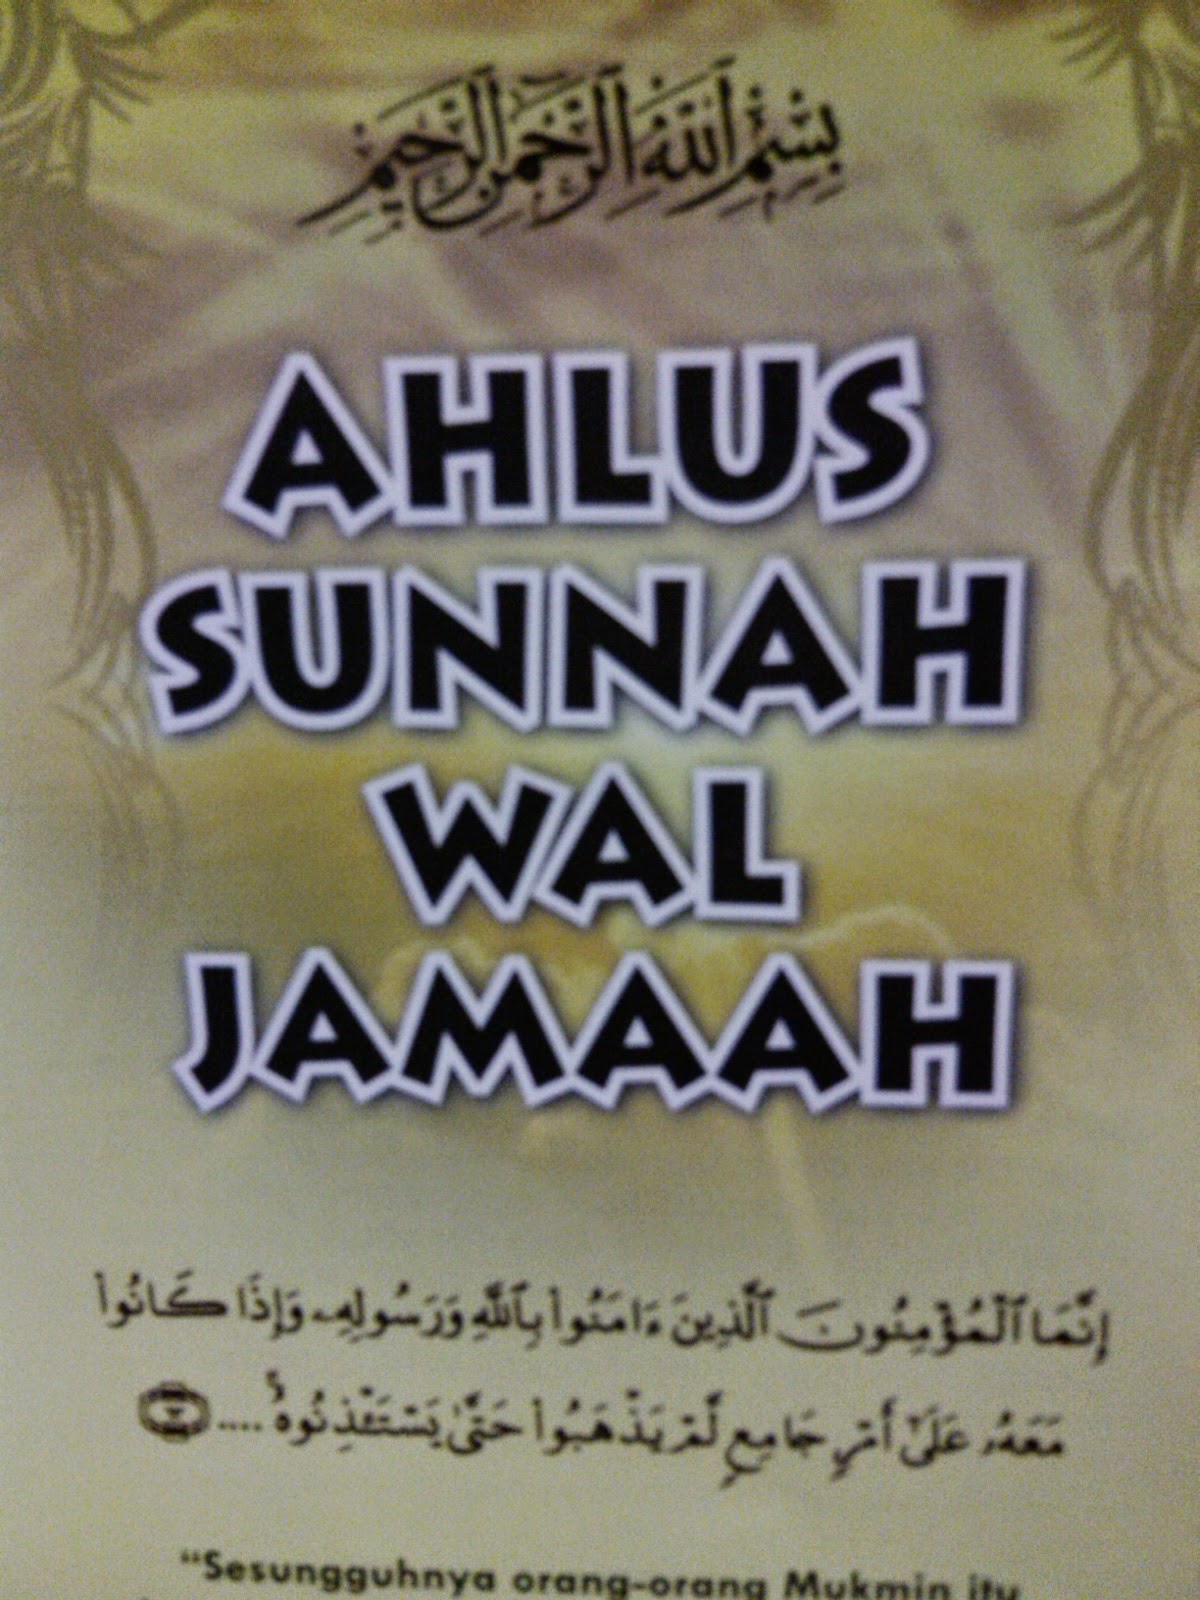 بِسْمِ اللَّهِ الرَّحْمَنِ الرَّحِيمِ
AHLUS
SUNNAH
WAL
JAMAAH
إِنَّمَا ٱلْمُؤْمِنُونَ ٱلَّذِينَ ءَامَنُوا۟ بِٱللَّهِ وَرَسُولِهِۦ وَإِذَا كَانُوا۟
مَعَهُۥ عَلَىٰٓ أَمْرٍ جَامِعٍ لَّمْ يَذْهَبُوا۟ حَتَّىٰ يَسْتَـْٔذِنُوهُ ۚ ....
“Sesungguhnya orang-orang Mukmin itu